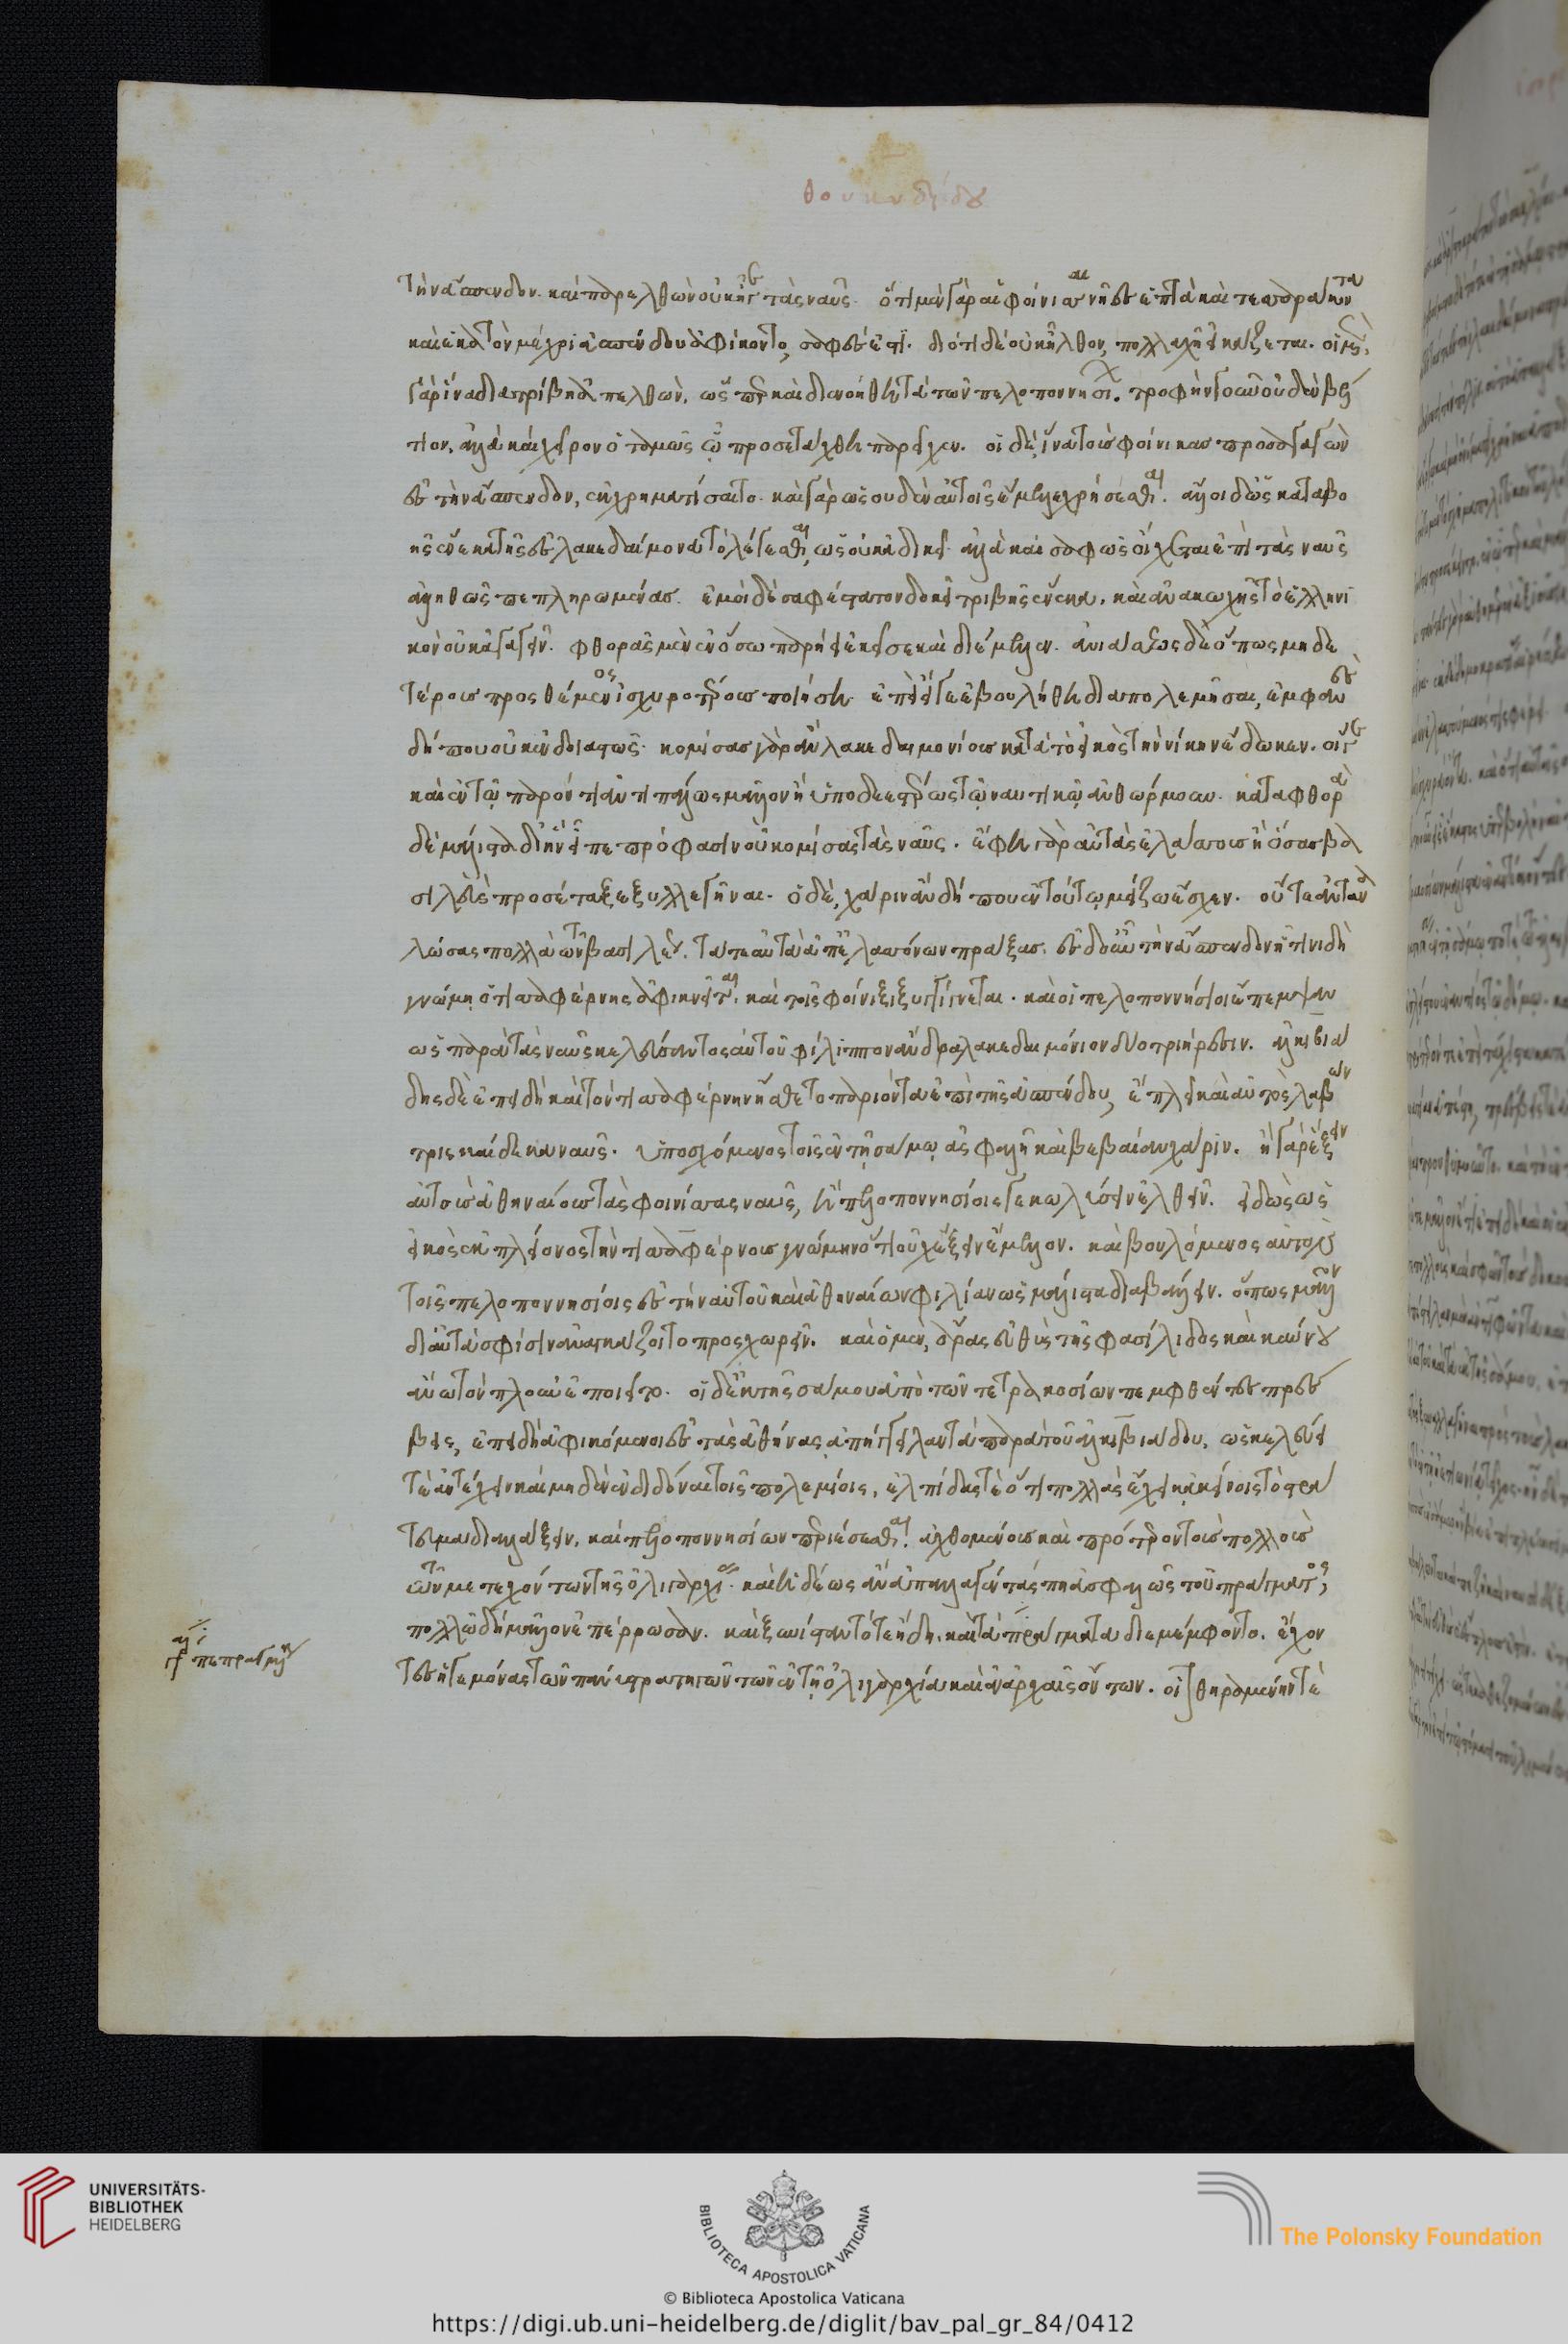 θουκυδίδου
τὴν ἄσπενδον. καὶ παρελθὼν οὐκ ἤγαγε τὰς ναῦς. ὅτι μὲν γὰρ αἱ φοίνισσαι νῆες ἑπτὰ καὶ τεσσαράκοντα
καὶ ἑκατὸν μέχρι ἀσπένδου ἀφίκοντο, σαφές ἐστι. διότι δὲ οὐκ ἦλθον, πολλαχῆ εἰκάζεται. οἱ μὲν
γὰρ ἵνα διατρίβη ἀπελθὼν, ὥσπερ καὶ διενοήθη τὰ τῶν πελοποννησί. τροφὴν γοῦν οὐδὲν βέλ
τιον, ἀλλὰ καὶ χεῖρον ὁ ταμὼς ᾧ προσετάχθη παρεῖχεν. οἱ δὲ, ἵνα τοὺς φοίνικας προσαγαγὼν
ἐς τὴν ἄσπενδον, ἐκχρηματίσαιτο. καὶ γὰρ ὣς οὐδὲν αὐτοῖς ἔμελλε χρήσεσθαι. ἄλλοι δ' ὡς καταβο
ῆς ἕνεκα τῆς ἐς λακεδαίμονα τὸ λέγεσθαι, ὡς οὐκ ἀδικεῖ. ἀλλὰ καὶ σαφῶς οἴχεται ἐπὶ τὰς ναῦς
ἀληθῶς πεπληρωμένας. ἐμοὶ δὲ σαφέστατον δοκεῖ τριβῆς ἕνεκα, καὶ ἀνακωχῆς τὸ ἑλληνι
κὸν οὐκ ἀγαγεῖν. φθορᾶς μὲν ἐν ὅσω παρήει ἐκεῖσε καὶ διέμελλεν. ἀνισώσεως δὲ ὅπως μηδε
τέροις προσθέμενος ἰσχυροτέρους ποιήση ἐπεὶ εἴ γε ἐβουλήθη διαπολεμῆσαι, ἐμφανὲς
δή που οὐκ ἐνδοιαστῶς. κομίσας γὰρ ἂν λακεδαιμονίοις κατὰ τὸ εἰκὸς τὴν νίκην ἔδωκεν. οἵ γε
καὶ ἐν τῷ παρόντι ἀντιπάλως μᾶλλον ἢ ὑποδεεστέρως τῷ ναυτικῷ ἀνθώρμουν. καταφθορᾷ
δὲ μάλιστα δι' ἣν εἶπε πρόφασιν οὐ κομίσας τὰς ναῦς. ἔφη γὰρ αὐτὰς ἐλάσσους ἢ ὅσας βα
σιλεὺς προσέταξε ξυλλεγῆναι. ὁ δὲ, χάριν ἂν δή που ἐν τούτω μείζω ἔσχεν. οὔτε ἀναλ
λώσας πολλὰ τῶν βασιλέως. τά τε αὐτὰ ἀπ' ἐλασσόνων πράξας. ἐς δ' οὖν τὴν ἄσπενδον ἥτινι δὴ
γνώμη ὁ τισαφέρνης ἀφικνεῖται. καὶ τοῖς φοίνιξι ξυγγίγνεται. καὶ οἱ πελοποννήσιοι ἔπεμψαν
ὡς παρὰ τὰς ναῦς κελεύσαντος αὐτοῦ φίλιππον ἄνδρα λακεδαιμόνιον δύο τριήρεσιν. ἀλκιβιά
δης δὲ ἐπειδὴ καὶ τὸν τισαφέρνην ἤσθετο παριόντα ἐπὶ τῆς ἀσπένδου, ἔπλει καὶ αὐτὸς λαβὼν
τρισκαίδεκα ναῦς. ὑποσχόμενος τοῖς ἐν τῇ σάμω ἀσφαλῆ καὶ βεβαίαν χάριν. ἢ γὰρ ἄξειν
αὐτοὺς ἀθηναίοις τὰς φοινίσσας ναῦς, ἢ πελοποννησίοις γε κωλύσειν ἐλθεῖν. εἰδὼς ὡς
εἰκὸς ἐκ πλείονος τὴν τισαφέρνους γνώμην ὅτι οὐκ ἄξειν ἔμελλεν. καὶ βουλόμενος αὐτὸν
τοῖς πελοποννησίοις ἐς τὴν αὑτοῦ καὶ ἀθηναίων φιλίαν ὡς μάλιστα διαβάλλειν. ὅπως μᾶλλον
δι' αὐτὰ σφίσιν ἀναγκάζοιτο προσχωρεῖν. καὶ ὁ μὲν, ἄρας εὐθὺς τῆς φασίλιδος καὶ καύνου
ἄνω τὸν πλοῦν ἐποιεῖτο. οἱ δὲ ἐκ τῆς σάμου ἀπὸ τῶν τετρακοσίων πεμφθέντες πρέσ
βεις, ἐπειδὴ ἀφικόμενοι ἐς τὰς ἀθήνας ἀπήγγειλαν τὰ παρὰ τοῦ ἀλκιβιάδου, ὡς κελεύει
τε ἀντέχειν καὶ μηδὲν ἐνδιδόναι τοῖς πολεμίοις, ἐλπίδας τὲ ὅτι πολλὰς ἔχει κἀκείνοις τὸ στρά
τευμα διαλλάξειν. καὶ πελοποννησίων περιέσεσθαι. ἀχθομένους καὶ πρότερον τοὺς πολλοὺς
τῶν μετεχόντων τῆς ὀλιγαρχίας. καὶ ἡδέως ἂν ἀπαλλαγέντας πη ἀσφαλῶς τοῦ πράγματος,
πολλῷ δὴ μᾶλλον ἐπέρρωσαν. καὶ ξυνίσταντό τε ἤδη. καὶ τὰ πράγματα διεμέμφοντο. ἔχον
τες ἡγεμόνας τῶν πάνυ στρατηγῶν τῶν ἐν τῇ ὀλιγαρχίᾳ καὶ ἐν ἀρχαῖς ὄντων. οἷον θηραμένην τὲ
UNIVERSITÄTS-
BIBLIOTHEK
HEIDELBERG
BIBLIOTECA APOSTOLICA VATICANA
The Polonsky Foundation
© Biblioteca Apostolica Vaticana
https://digi.ub.uni-heidelberg.de/diglit/bav_pal_gr_84/0412